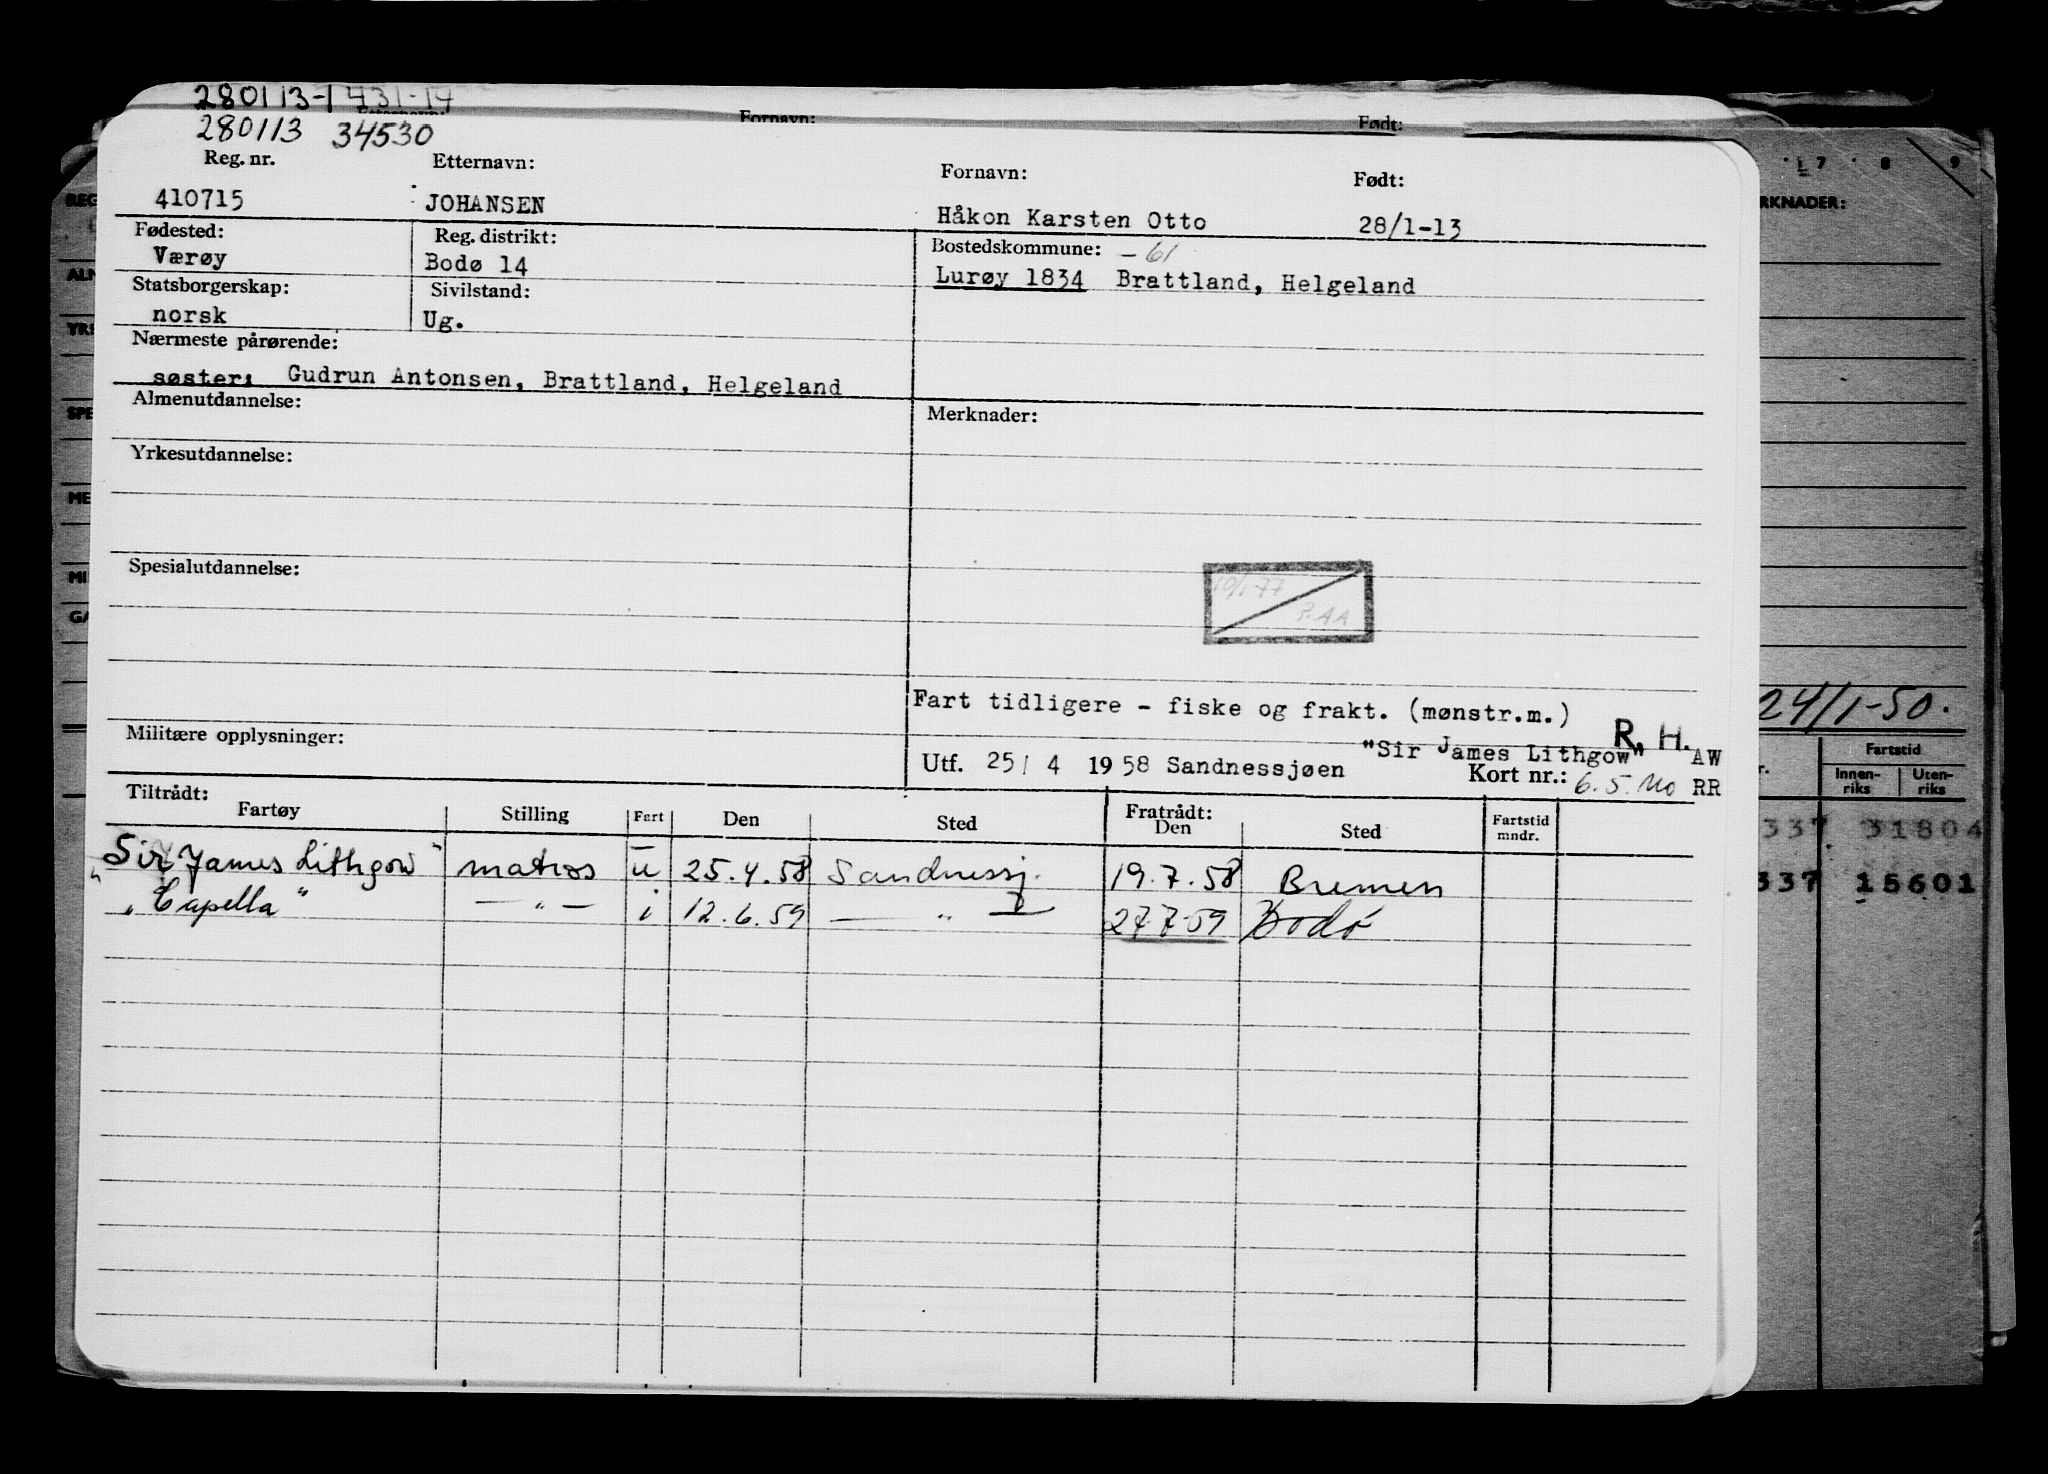 280113-1 431-14
Fornavn: Født:
280113 34530
Reg. nr. Etternavn: Fornavn: Født:
410715 JOHANSEN Håkon Karsten Otto 28/1-13
Fødested: Reg. distrikt: Bostedskommune: -61
Værøy Bodø 14 Lurøy 1834 Brattland, Helgeland
Statsborgerskap: Sivilstand:
norsk Ug.
Nærmeste pårørende:
søster: Gudrun Antonsen, Brattland, Helgeland
Almenutdannelse: Merknader:
Yrkesutdannelse:
Spesialutdannelse:
10/1-77
Fart tidligere - fiske og frakt. (mønstr.m.) R. H.
Militære opplysninger: "Sir James Lithgow" AW
Utf. 25/4 1958 Sandnessjøen Kort nr.: RR
Tiltrådt: Fratrådt:
Fartøy Stilling Fart Den Sted Den Sted Fartstid mndr.
"Sir James Lithgow" matros u 25.4.58 Sandnessj. 19.7.58 Bremen
"Capella" — " — i 12.6.59 — " — 27.7.59 Bodø
7 8 9
RKNADER:
24/1-50.
Fartstid
Innen-riks Uten-riks
337 31804
337 15601